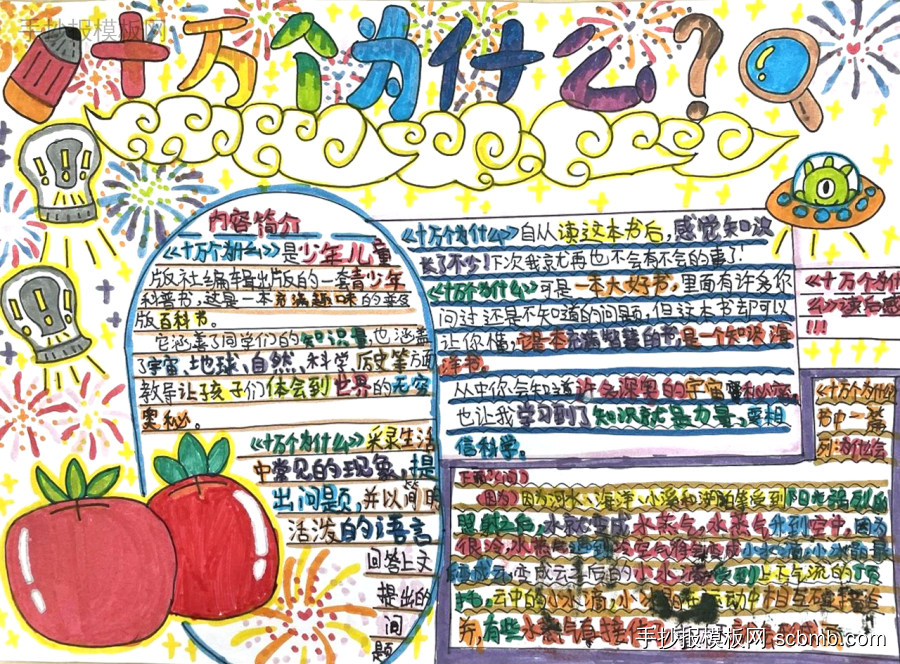 手抄报模板网
十万个为什么?
内容简介
《十万个为什么》是少年儿童
版社编辑出版的一套青少年
科普书,这是一本充满趣味的
版百科书。
它涵盖了同学们的知识量,也涵盖
了宇宙、地球、自然、科学、历史等方面
教导让孩子们体会到世界的无穷
奥秘。
《十万个为什么》采录生活
中常见的现象,提
出问题,并以简明
活泼的语言
回答上文
提出的
问
题
《十万个为什么》自从读这本书后,感觉知识
长了不少!下次我就再也不会有不会的事了!
《十万个为什么》可是一本大好书,里面有许多你
问过还是不知道的问题,但这本书却可以
让你懂,它是本充满智慧的书,是一个知识海
洋书。
从中你会知道许多深奥的宇宙
也让我学习到了知识就是力量,要相
信科学。
《十万个为什
么》读后感
!!!
《十万个为什么
书中一篇
列:为什么会
下雨(问)
(因为)因为河水、海洋、小溪和湖泊等受到阳光强烈的
照射之后,水就变成水蒸气,水蒸气升到空中,因为
很冷,水蒸气遇到冷空气
变成云后的上下气流的顶
托,云中的小水滴,运动中相互碰撞合
并,有些水蒸气直接
手抄报模板网 scbmb.com